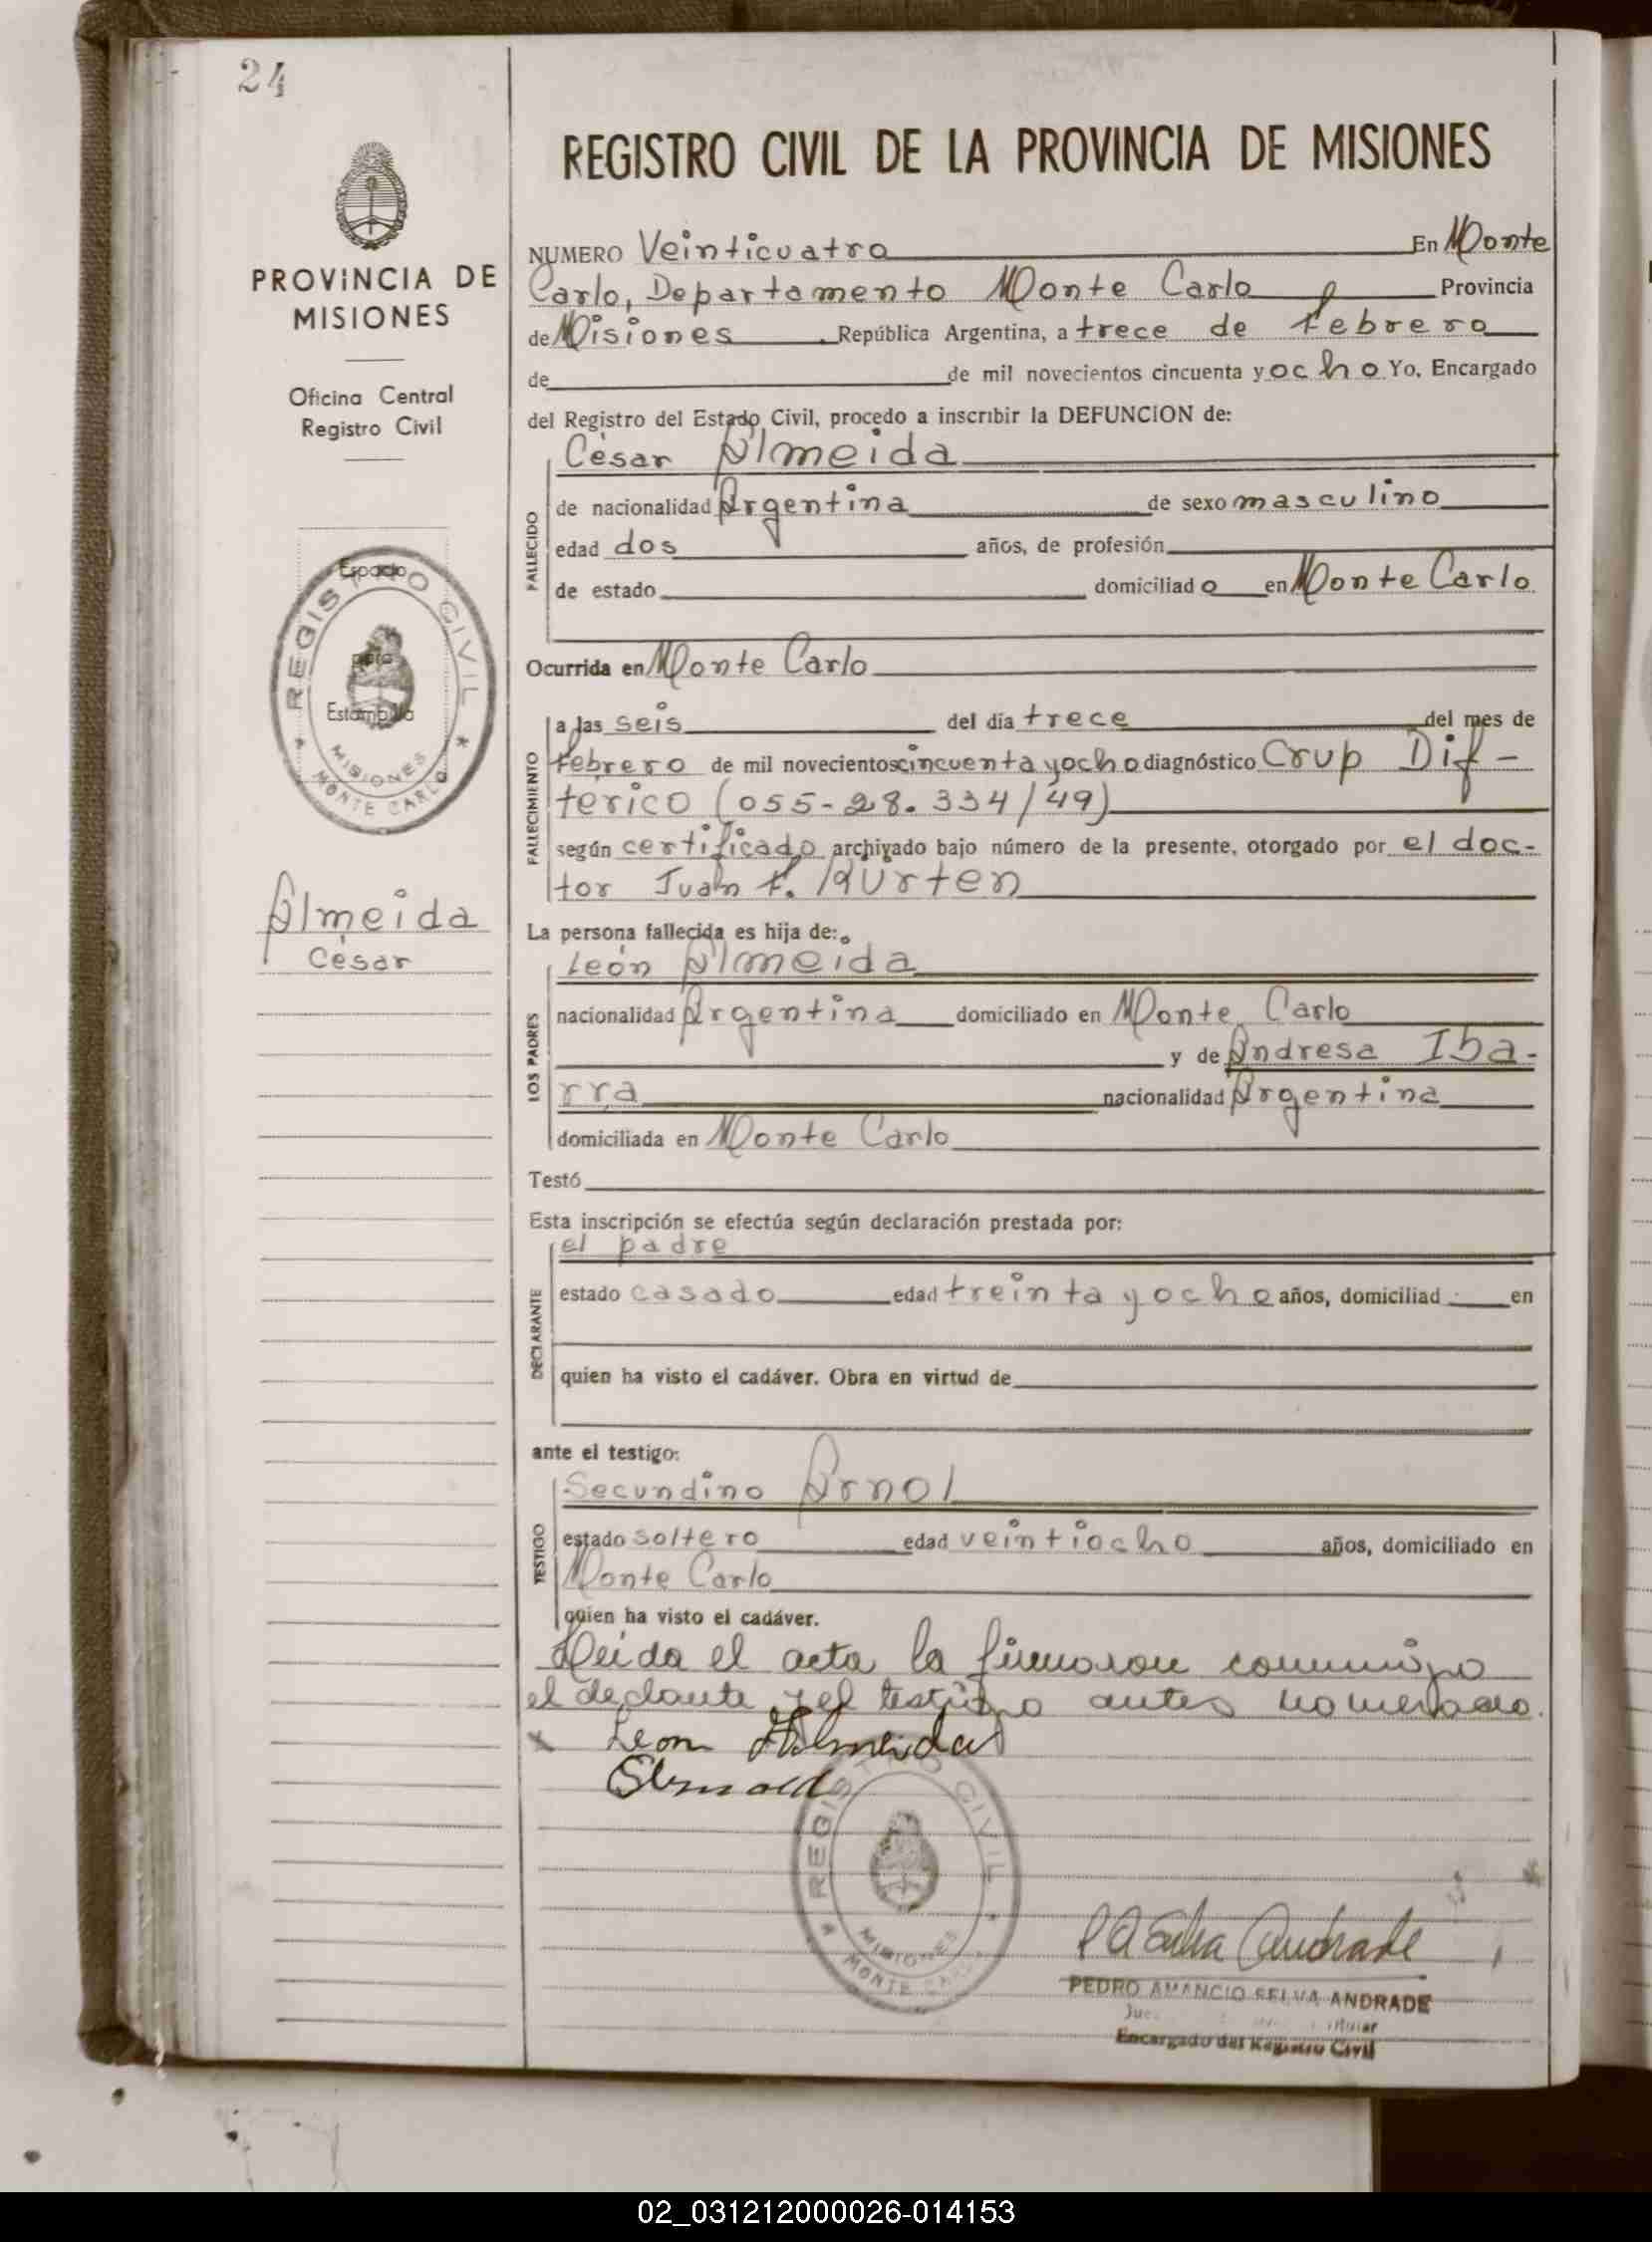 24
PROVINCIA DE
MISIONES
Oficina Central
Registro Civil
Espacio
para
Estampilla
REGISTRO CIVIL
MISIONES
MONTE CARLO
Almeida
César
REGISTRO CIVIL DE LA PROVINCIA DE MISIONES
NUMERO Veinticuatro En Monte
Carlo, Departamento Monte Carlo Provincia
de Misiones República Argentina, a trece de febrero
de de mil novecientos cincuenta y ocho Yo, Encargado
del Registro del Estado Civil, procedo a inscribir la DEFUNCION de:
FALLECIDO
César Almeida
de nacionalidad Argentina de sexo masculino
edad dos años, de profesión
de estado domiciliado en Monte Carlo
Ocurrida en Monte Carlo
FALLECIMIENTO
a las seis del día trece del mes de
febrero de mil novecientos cincuenta y ocho diagnóstico Crup Dif-
terico (055-28.334/49)
según certificado archivado bajo número de la presente, otorgado por el doc-
tor Juan F. Kurten
La persona fallecida es hija de:
LOS PADRES
León Almeida
nacionalidad Argentina domiciliado en Monte Carlo
y de Andresa Iba-
rra nacionalidad Argentina
domiciliada en Monte Carlo
Testó
Esta inscripción se efectúa según declaración prestada por:
DECLARANTE
el padre
estado casado edad treinta y ocho años, domiciliad en
quien ha visto el cadáver. Obra en virtud de
ante el testigo:
TESTIGO
Secundino Arnol
estado soltero edad veintiocho años, domiciliado en
Monte Carlo
quien ha visto el cadáver.
Leida el acta la firmaron conmigo
el declante y el testigo antes nomerado.
x Leon Almeida
REGISTRO CIVIL
MISIONES
MONTE CARLO
PEDRO AMANCIO SELVA ANDRADE
Encargado del Registro Civil
02_031212000026-014153